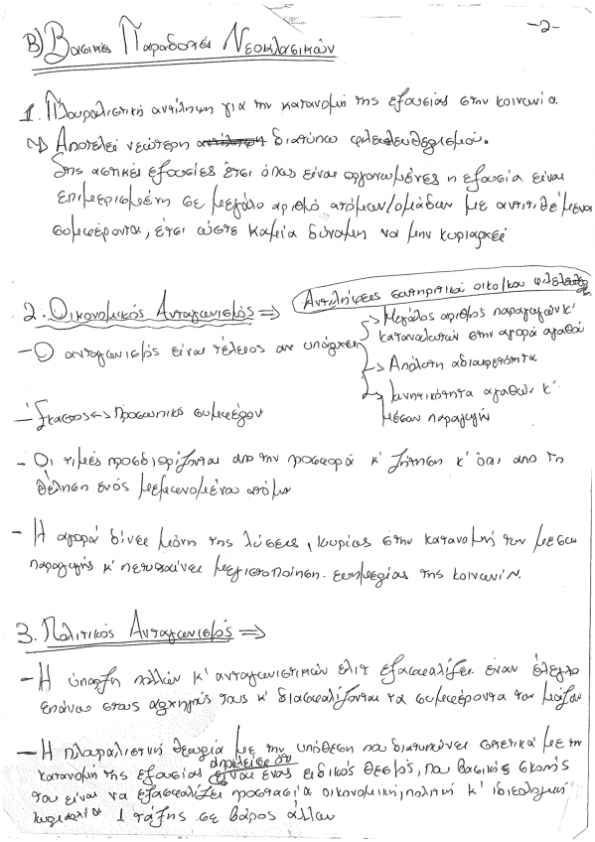 -2-
Β) Βασικές Παραδοχές Νεοκλασικών
1. Πλουραλιστική αντίληψη για την κατανομή της εξουσίας στην κοινωνία.
Αποτελεί νεώτερη διατύπω φιλελευθερισμού.
Στις αστικές εξουσίες έτσι όπως είναι οργανωμένες η εξουσία είναι
επιμερισμένη σε μεγάλο αριθμό ατόμων/ομάδων με αντιτιθέμενα
συμφέροντα, έτσι ώστε καμία δύναμη να μην κυριαρχεί
2. Οικονομικός Ανταγωνισμός ⇒
Αντιλήψεις συντηρητικού οικο/κου φιλελευθ
- Ο ανταγωνισμός είναι τέλειος αν υπάρχει
→ Μεγάλος αριθμός παραγωγών κ'
καταναλωτών στην αγορά αγαθού
→ Απόλυτη αδιαιρετότητα
→ Κινητικότητα αγαθών κ'
μέσων παραγωγής
- Έκαστος <-> προσωπικό συμφέρον
- Οι τιμές προσδιορίζονται απο την προσφορά κ' ζήτηση κ' όχι απο τη
θέληση ενός μεμωνομένου ατόμου
- Η αγορά δίνει μόνη της λύσεις, κυρίως στην κατανομή των μέσων
παραγωγής κ' πετυχαίνει μεγιστοποίηση ευημερίας της κοινων/ν.
3. Πολιτικός Ανταγωνισμός ⇒
- Η ύπαρξη πολλών κ' ανταγωνιστικών ελίτ εξασφαλίζει έναν έλεγχο
επάνω στους αρχηγούς τους κ' διασφαλίζονται τα συμφέροντα των μαζών
- Η πλαραλιστική θεωρία με την υπόθεση που διατυπώνει σχετικά με την
κατανομή της εξουσίας είναι ένας ειδικός θεσμός, που βασικός σκοπός
του είναι να εξασφαλίζει προστασία οικονομική, πολιτική κ' ιδεολογική
1 τάξης σε βάρος άλλων